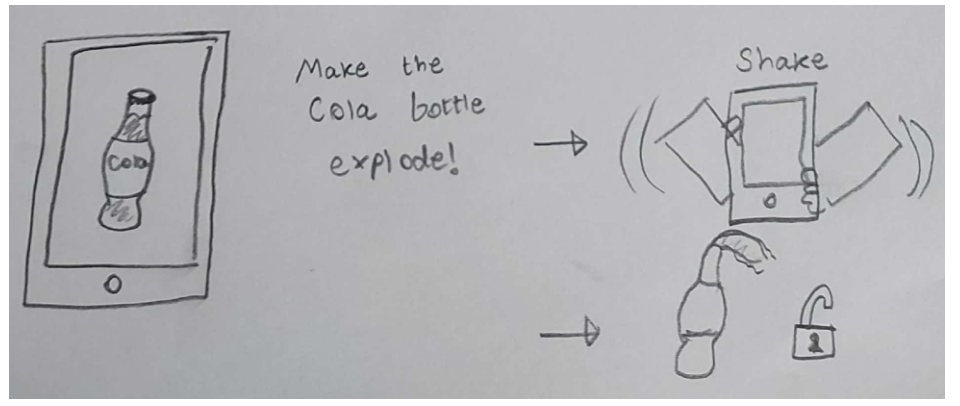 Cola
Make the
Cola bottle
explode!
Shake